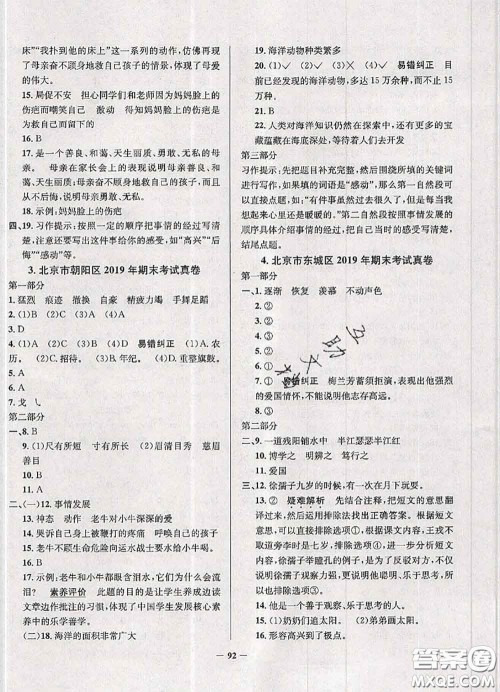 床”“我扑到他的床上”这一系列的动作，仿佛再现
了母亲奋不顾身地救自己孩子的情景，体现了母爱
的伟大。
15. 局促不安　担心同学们和老师因为妈妈脸上的
伤疤而嘲笑自己　激动　得知妈妈脸上的伤疤是
为救自己而留下的
16. B
17. 是一个善良、和蔼、天生丽质、勇敢、无私的母
亲。母亲在家长会上的表现说明母亲善良、和蔼、
天生丽质。母亲奋不顾身地救自己的孩子，体现了
她的勇敢和无私。
18. 示例：妈妈脸上的伤疤
四、19. 习作提示：按照一定的顺序把事情的经过写清
楚，注意写出这件事带给你的感受，如“高兴”“后
悔”“感动”等。
3. 北京市朝阳区 2019 年期末考试真卷
第一部分
1. 猛烈　痕迹　撤换　自豪　精疲力竭　手疾眼快
2. (1)B　(2)C　(3)A　(4)C
3. D
4. (1)C　(2)B　(3)A　(4)A　易错纠正　(1)A. 农
历。　(2)D. 计划。　(3)B. 年纪。　(4)D. 重整旗鼓。
5. A
6. A
7. 戈　乀
第二部分
一、8. B
9. (1)尺有所短　寸有所长　(2)眉清目秀　慈眉
善目
10. B
11. B
二、(一)12. 事情发展
13. 神态　动作　老牛对小牛深深的爱
14. 哭诉自己身上被鞭打的疼痛　呼唤自己的孩子
15. 老牛不顾生命危险向运水战士要水给小牛喝。
16. B
17. 示例：老牛和小牛都眼含泪水，它们为什么会流
泪？　素养评价　此题的设计意图在于学生养成边读
文章边作批注的习惯，体现了中国学生发展核心素养
中的乐学善学。
(二)18. 海洋的面积非常广大
19. 海洋动物种类繁多
20. (1)✓　(2)✓　(3)✓　(4)✗　易错纠正　目
前已经发现的海洋动物，多达 15 万余种，而不止 15
万种。
21. B
22. 人类对海洋知识仍然在探索中，还有更多的宝
藏蕴藏在海底深处，等待着人们去开发
第三部分
习作提示：先把题目补充完整，然后围绕所填的关键词
进行写作，如果填的词语是“感动”，那么第一自然段可
以直接点题，如：“有件事虽然过去很久了，但一想起来
心里总是暖暖的。”第二自然段按照事情发展的
顺序具体介绍事情的经过，注意写清楚自己的感受，
结尾点题。
4. 北京市东城区 2019 年期末考试真卷
第一部分
一、1. 逐渐　恢复　羡慕　不动声色
2. ②
3. ①
4. ②
5. ②
6. ③
7. ①　易错纠正　梅兰芳蓄须拒演，表现出他强烈的
爱国情怀，不能说明他志存高远。
8. ③
第二部分
二、9. 一道残阳铺水中　半江瑟瑟半江红
10. 博学之　明辨之　笃行之
11. 爱国
三、12. 徐孺子九岁的时候，有一次在月下玩耍。
13. ②　疑难解析　先结合注释，把短文的意思翻
译出来，使用排除法找出正确答案。根据短文的意
思，可以直接排除选项①；根据课文内容，王戎不
取道旁李时是七岁，排除选项③，进一步分析短文
内容，短文中画线句子的意思，是为了反驳对方，不
能说明徐孺子观察力强，更说明他乐于思考，善于
观察，因此排除选项④。
14. 示例：他是一个善于观察、乐于思考的人。
四、15. ①奶奶们追太阳。②弟弟画太阳。
16. 形容高兴到了极点。
互助文摘
92
答案圈
MXQE.COM